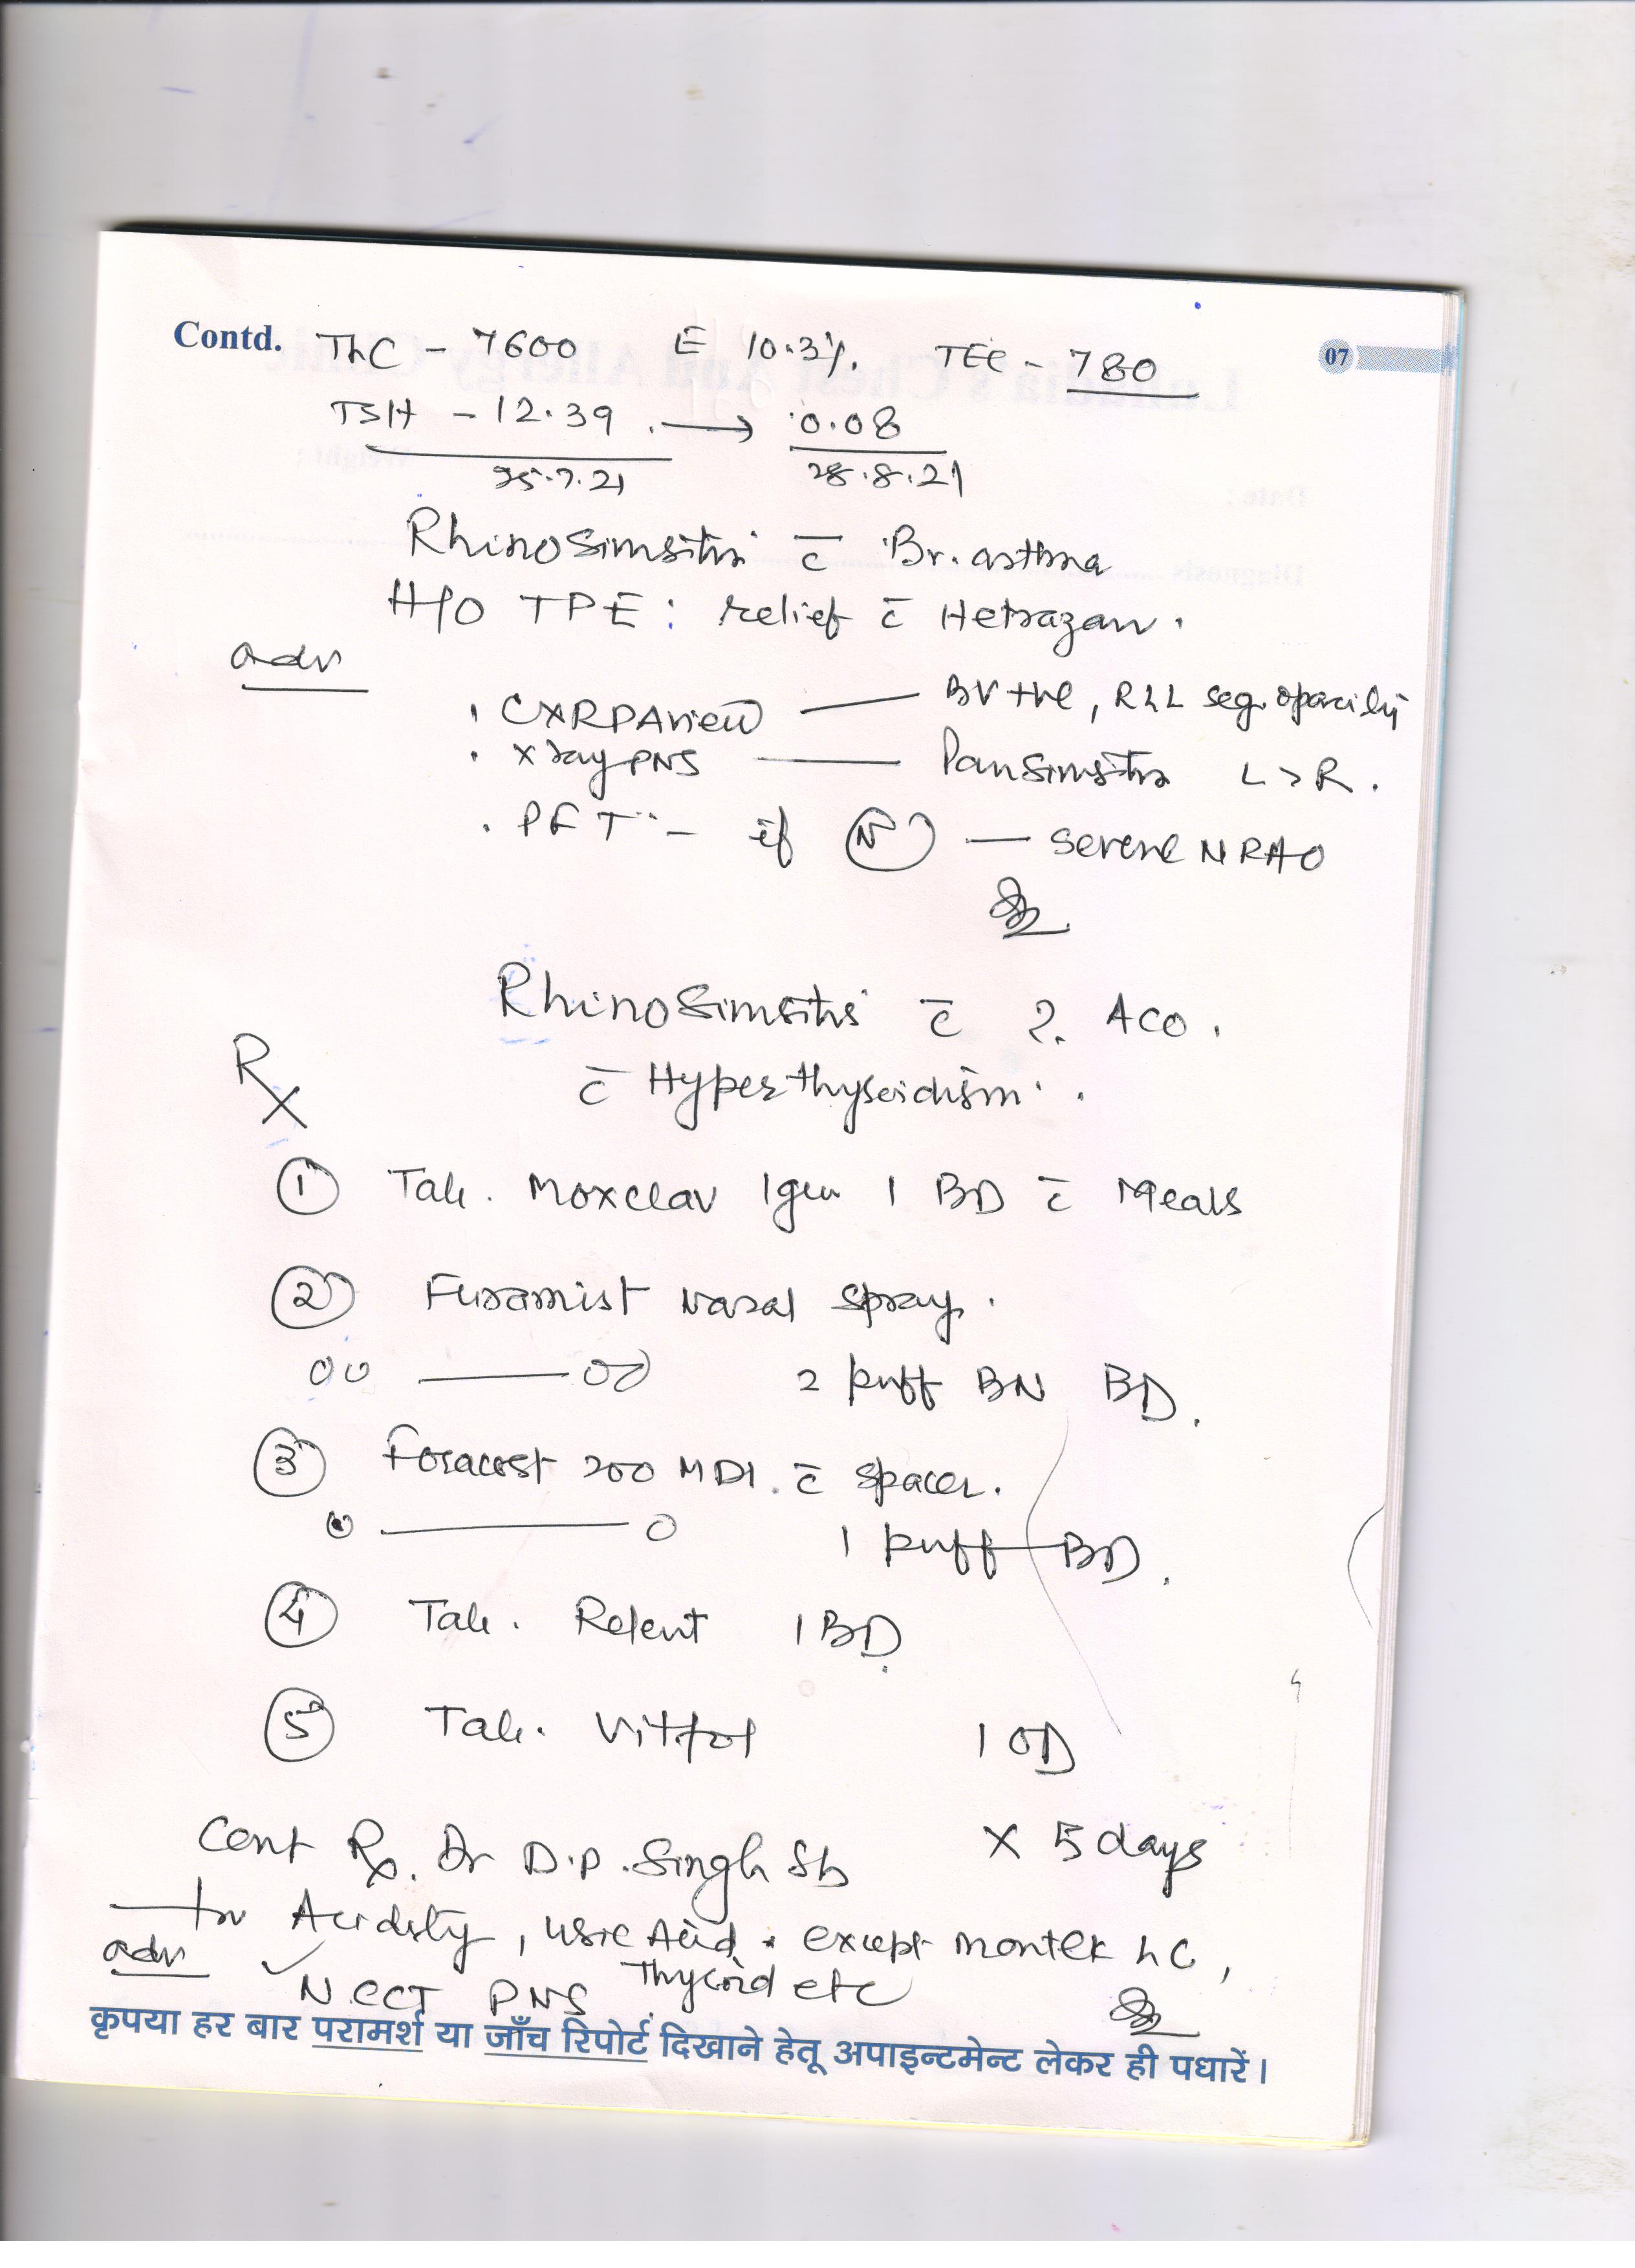 Contd. TLC - 7600 E 10.3%. TEC - 780 07
TSH - 12.39 → 0.08
25.7.21 28.8.21
Rhinosinusitis c̄ Br. asthma
H/O TPE : relief c̄ Hetrazan.
adv
. CXR PA view — BV +ve, RLL seg. opacity
. Xray PNS — Pansinusitis L > R.
. PFT - if (N) — severe NRAO
Rhinosinusitis c̄ ?. ACO.
Rx c̄ Hyperthyroidism.
① Tab. Moxclav 1gm 1 BD c̄ Meals
② Furamist Nasal spray.
00 — 00 2 puff BN BD.
③ Foracort 200 MDI. c̄ spacer.
0 — 0 1 puff BD.
④ Tab. Relent 1 BD.
⑤ Tab. Vitfol 1 OD
Cont Rx. Dr D.P. Singh Sb × 5 days
for Acidity, Uric Acid. except Montek LC,
adv ✓ NCCT PNS Thyroid etc
कृपया हर बार परामर्श या जाँच रिपोर्ट दिखाने हेतू अपाइन्टमेन्ट लेकर ही पधारें।